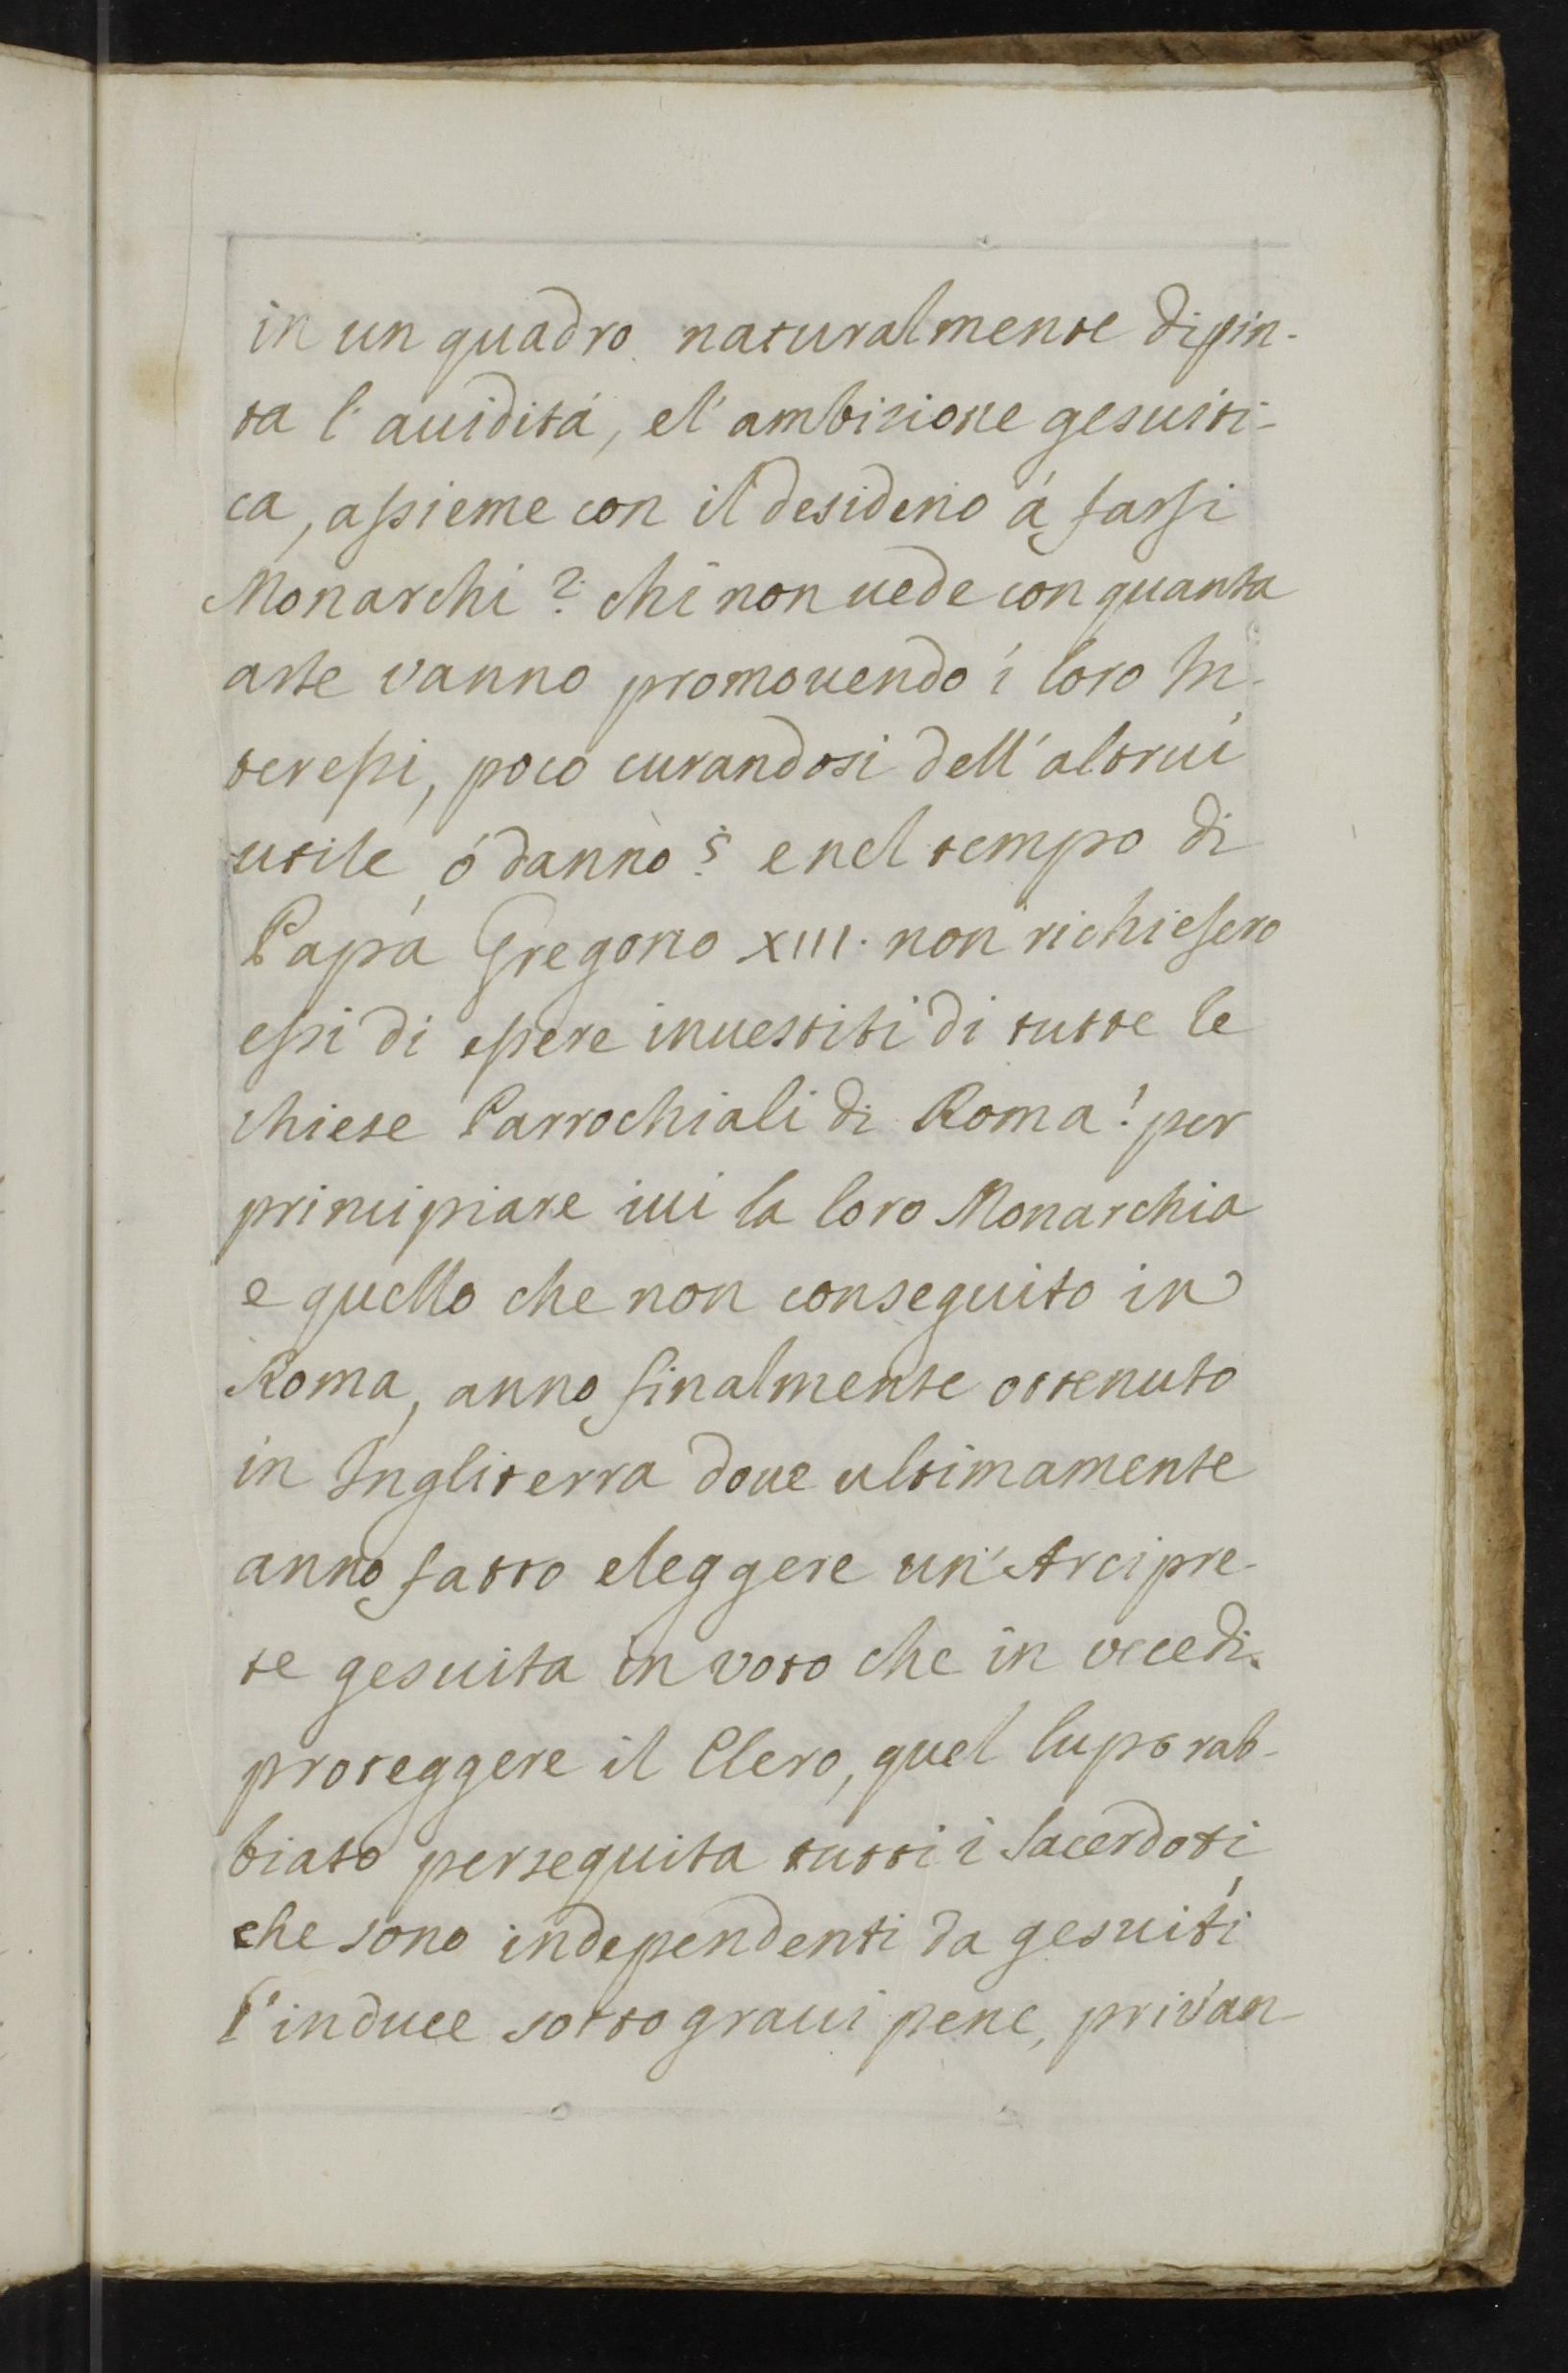 in un quadro naturalmente dipin-
ta l'auidità, el'ambizione gesuiti-
ca, assieme con il desiderio á farsi
Monarchi? chi non uede con quanta
arte vanno promouendo i loro In-
teressi, poco curandosi dell'altrui
utile, ó danno? e nel tempo di
Papa Gregorio XIII. non richiesero
essi di essere inuestiti di tutte le
chiese Parrochiali di Roma! per
principiare iui la loro Monarchia
e quello che non conseguito in
Roma, anno finalmente ottenuto
in Ingliterra doue ultimamente
anno fatto eleggere un'Arcipre-
te gesuita in voto che in vece di
proteggere il Clero, quel lupo rab-
biato perseguita tutti i Sacerdoti
che sono independenti da gesuiti
l'induce sotto graui pene, privan-